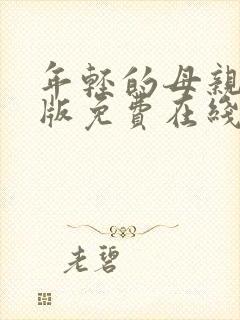 年轻的母亲
版免费在线
老碧